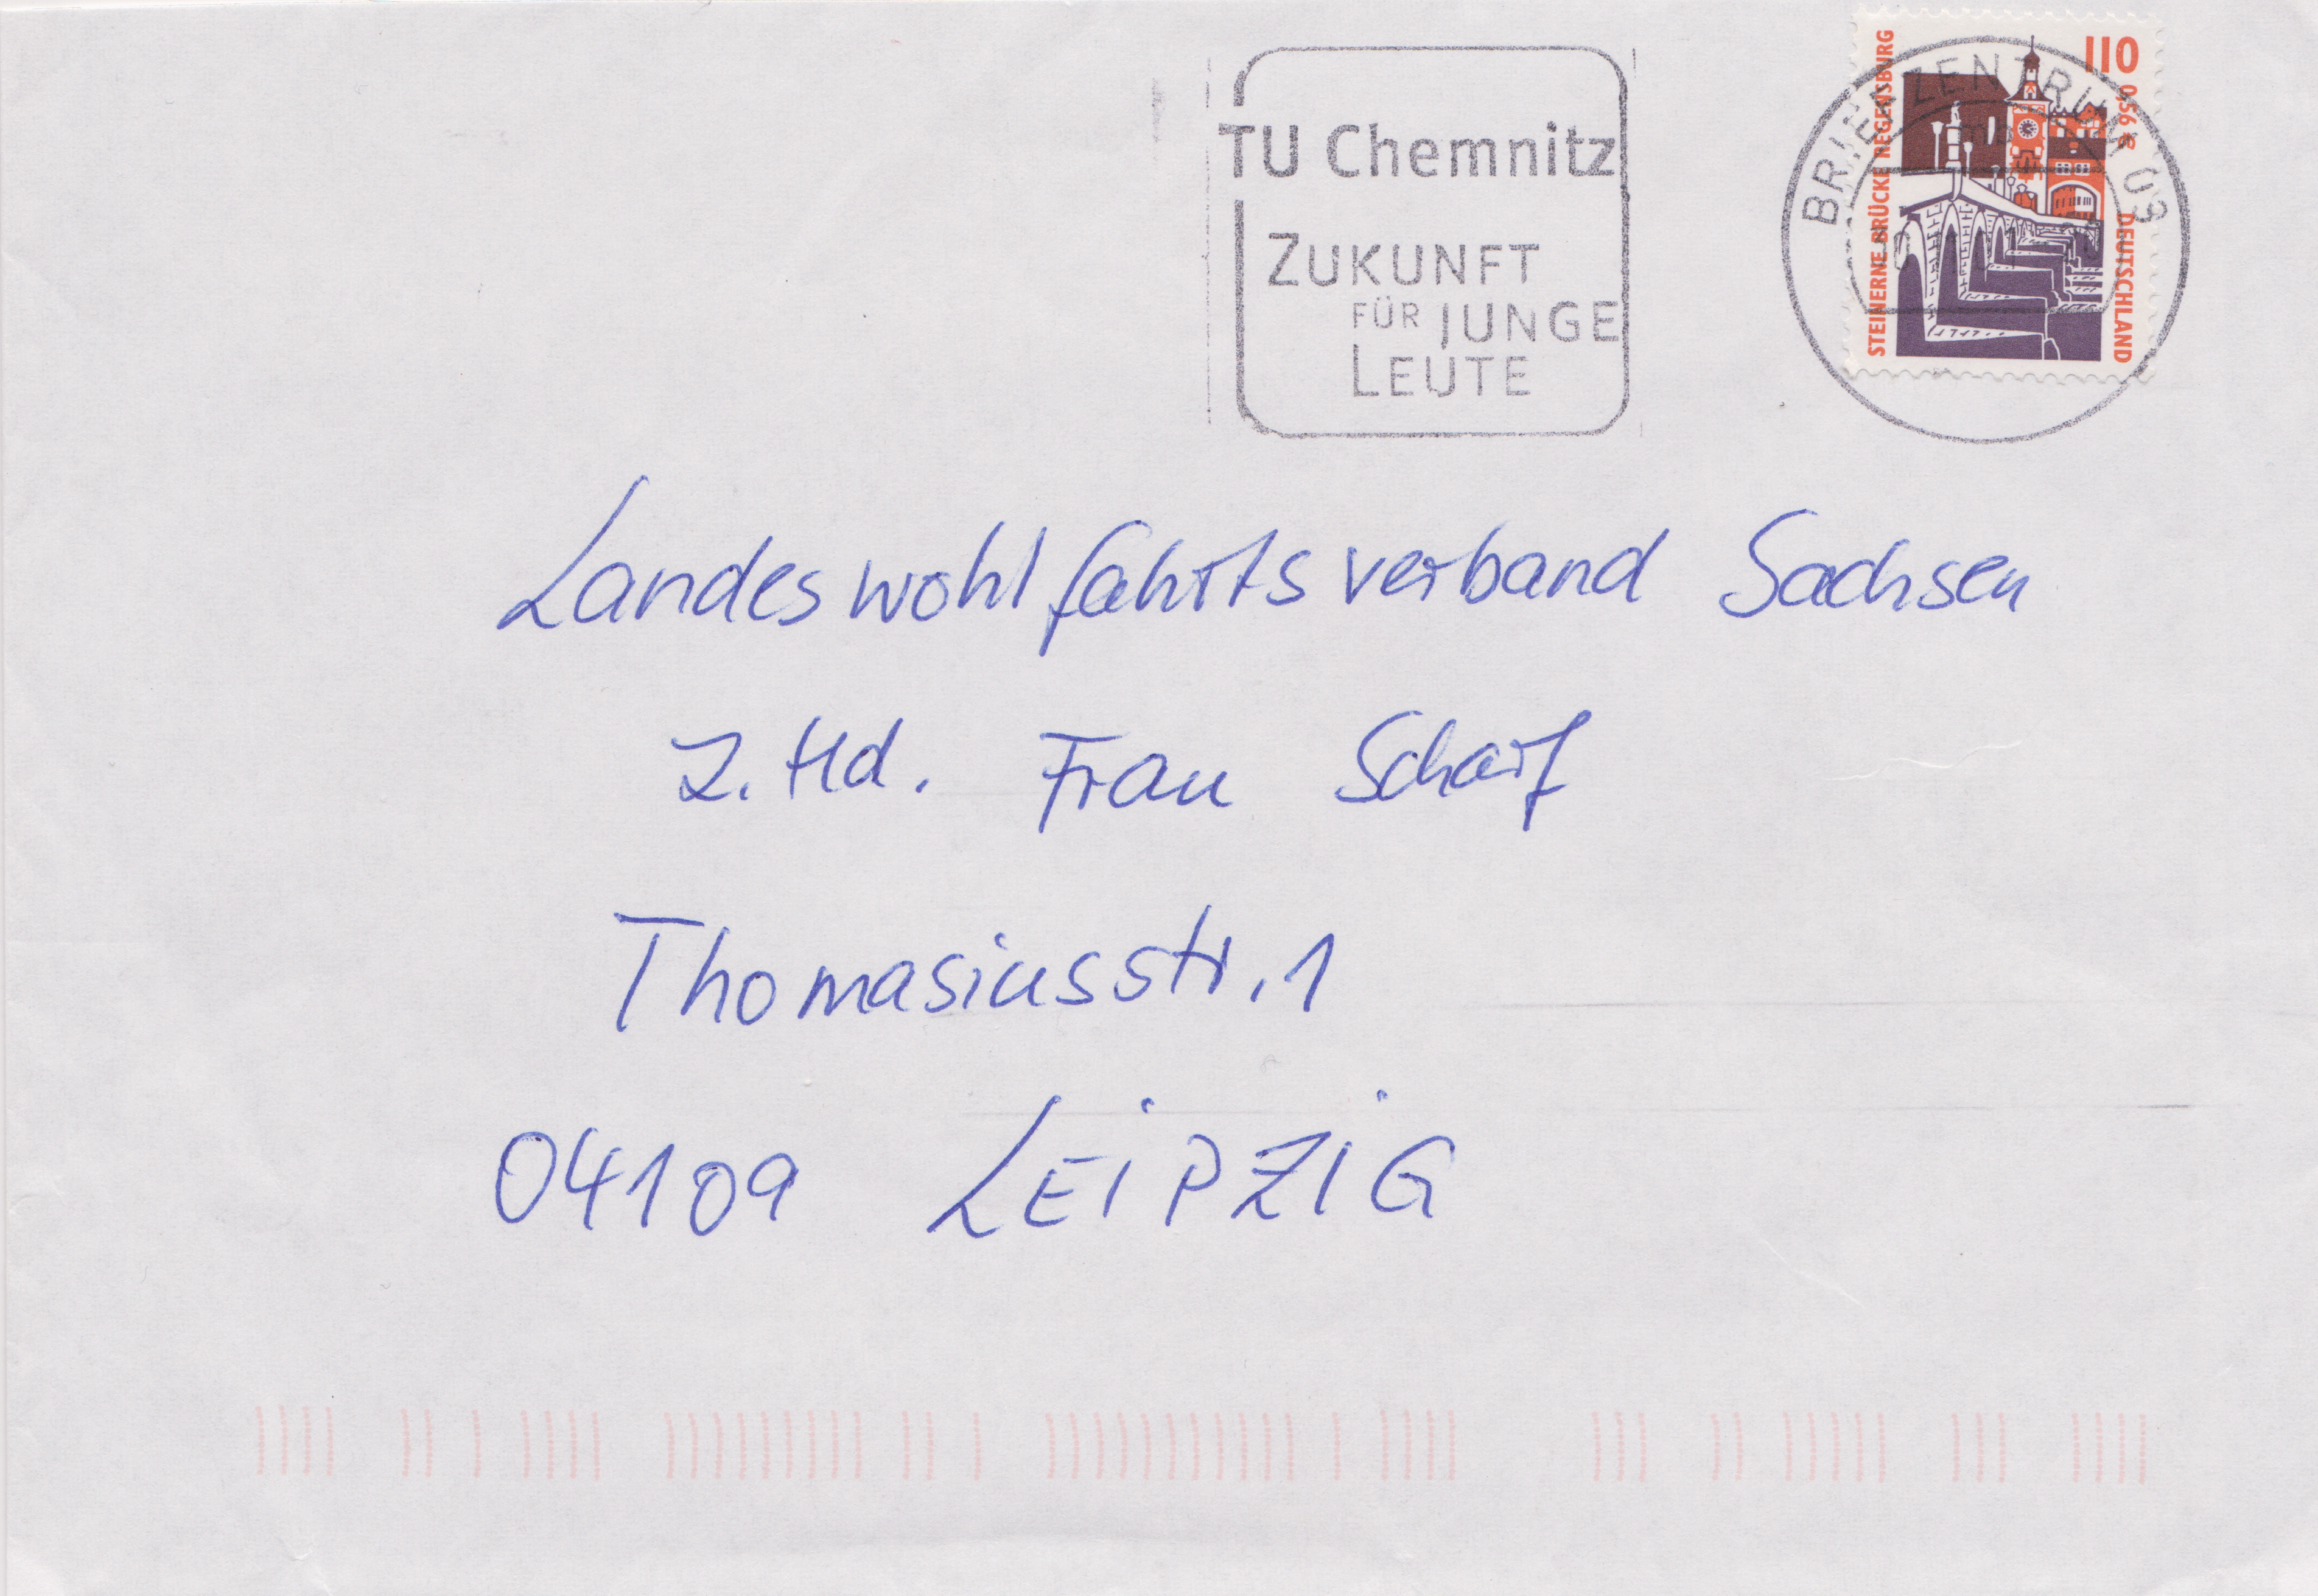 TU Chemnitz
ZUKUNFT
FÜR JUNGE
LEUTE
BRIEFZENTRUM 09
STEINERNE BRÜCKE REGENSBURG
110
0,56 €
DEUTSCHLAND
Landeswohlfahrtsverband Sachsen
z. Hd. Frau Scharf
Thomasiusstr. 1
04109 LEiPZiG